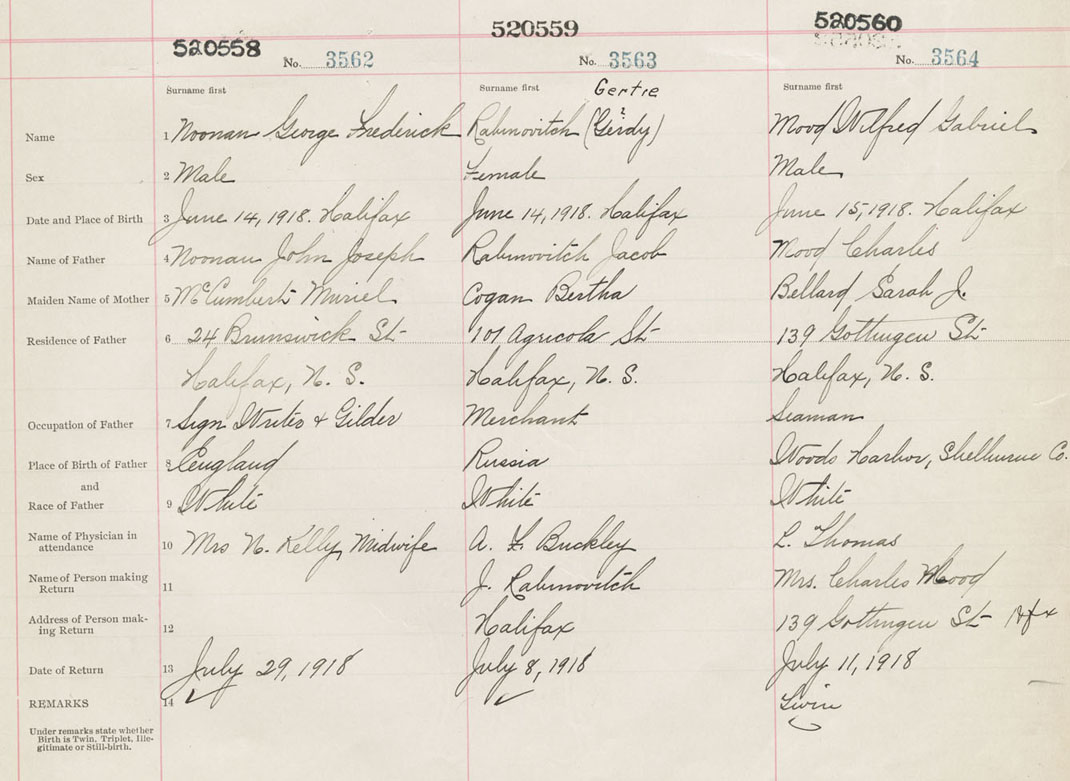 520558 520559 520560
No. 3562 No. 3563 No. 3564
Surname first Surname first Gertie Surname first
Name 1 Noonan George Frederick Rabinovitch (Gerdy) ? Mood Wilfred Gabriel
Sex 2 Male Female Male
Date and Place of Birth 3 June 14, 1918. Halifax June 14, 1918. Halifax June 15, 1918. Halifax
Name of Father 4 Noonan John Joseph Rabinovitch Jacob Mood Charles
Maiden Name of Mother 5 McCumbert Muriel Cogan Bertha Bellard Sarah J.
Residence of Father 6 24 Brunswick St 101 Agricola St 139 Gottingen St
Halifax, N. S. Halifax, N. S. Halifax, N. S.
Occupation of Father 7 Sign Writer & Gilder Merchant Seaman
Place of Birth of Father 8 England Russia Woods Harbor, Shelburne Co.
and
Race of Father 9 White White White
Name of Physician in
attendance 10 Mrs N. Kelly, Midwife A. Buckley L. Thomas
Name of Person making
Return 11 J. Rabinovitch Mrs. Charles Mood
Address of Person mak-
ing Return 12 Halifax 139 Gottingen St Hfx
Date of Return 13 July 29, 1918 July 8, 1918 July 11, 1918
REMARKS 14 Twin
Under remarks state whether
Birth is Twin, Triplet, Ille-
gitimate or Still-birth.